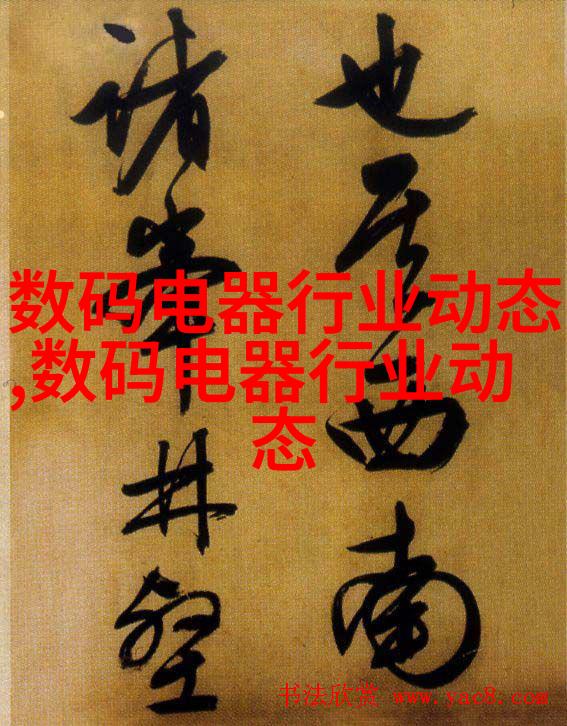 也其西南
諸峯林壑
数码电器行业动态
,数码电器行业动
态
书法欣赏 www.yac8.com